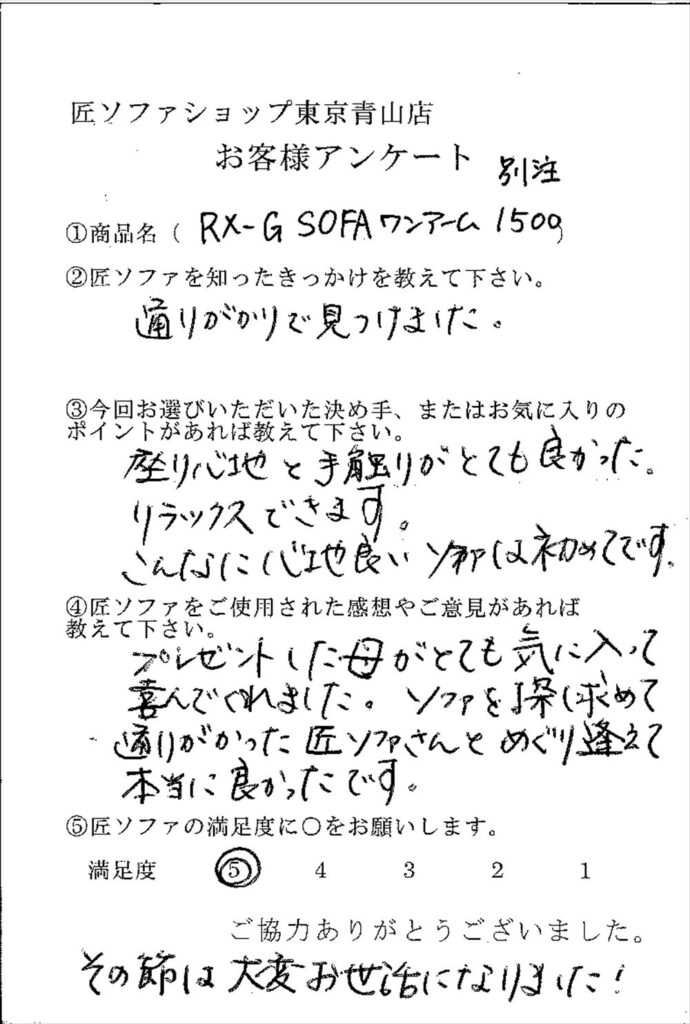 匠ソファショップ東京青山店
お客様アンケート 別注
①商品名（ RX-G SOFAワンアーム 1500）
②匠ソファを知ったきっかけを教えて下さい。
通りがかりで見つけました。
③今回お選びいただいた決め手、またはお気に入りの
ポイントがあれば教えて下さい。
座り心地と手触りがとても良かった。
リラックスできます。
こんなに心地良いソファは初めてです。
④匠ソファをご使用された感想やご意見があれば
教えて下さい。
プレゼントした母がとても気に入って
喜んでくれました。ソファを探し求めて
通りがかった匠ソファさんとめぐり逢えて
本当に良かったです。
⑤匠ソファの満足度に〇をお願いします。
満足度 5 4 3 2 1
ご協力ありがとうございました。
その節は大変お世話になりました！